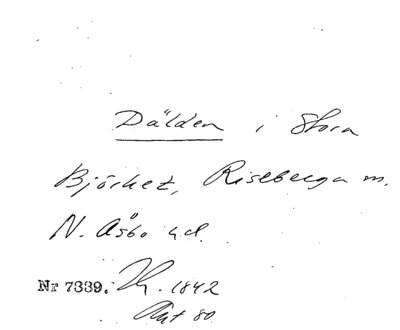 Dälden i Stora
Björket, Riseberga m.
N. Åsbo hd.
Nr 7339. 1842
Akt 80